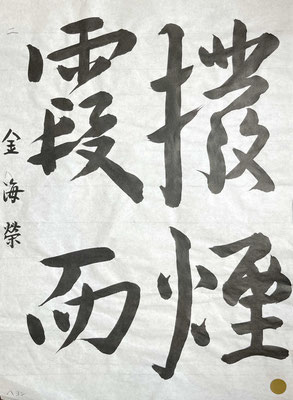 撥煙
霞而
二
金海榮